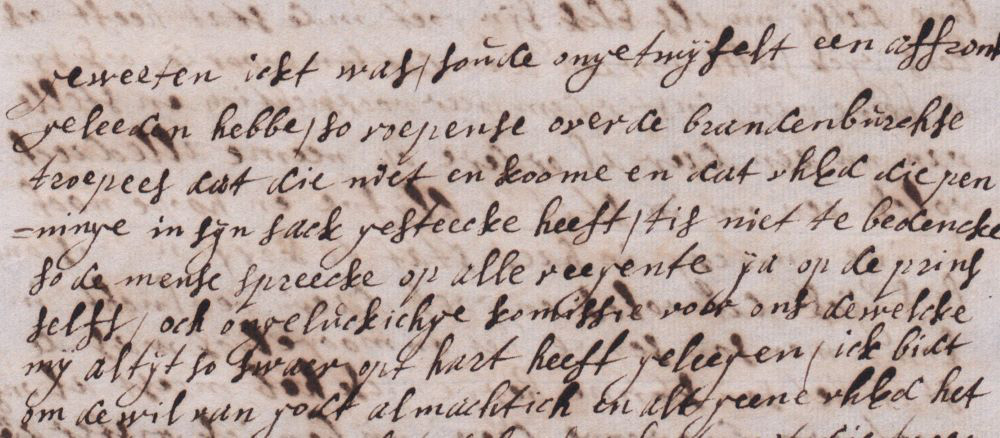 geweeten ickt was / soude ongetwyfelt een affront
geleeden hebbe / so roepense over de brandenburchse
troepees dat die niet en koome en dat uhEd die pen
=ninge in syn sack gesteecke heeft / tis niet te bedencke
so de mense spreecke op alle reegente ya op de prins
selfs / och ongeluckichge komissie voor ons dewelcke
my altyt so swaer opt hart heeft geleegen / ick bidt
om de wil van godt almachtich en alt geene uhEd het